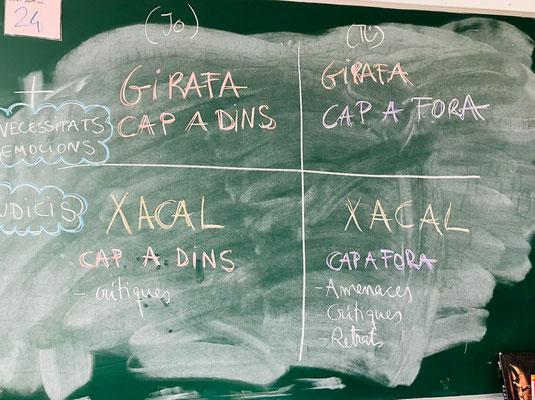 24
(Jo)
(Tú)
+
GIRAFA
CAP A DINS
GIRAFA
CAP A FORA
NECESSITATS
EMOCIONS
JUDICIS
XACAL
CAP A DINS
- crítiques
XACAL
CAP A FORA
- Amenaces
- Crítiques
- Retrats